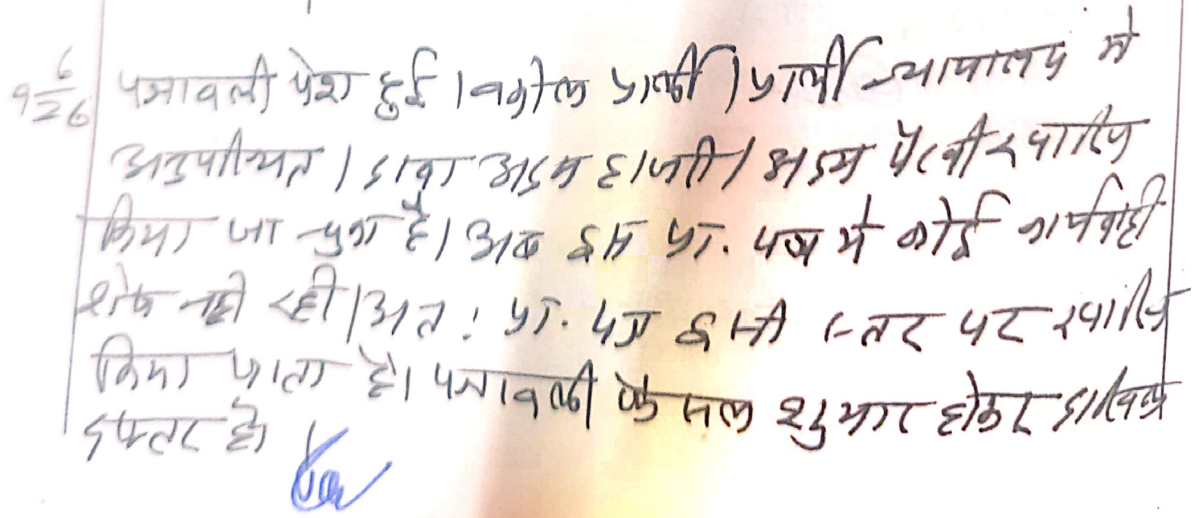 9 6/26 पत्रावली पेश हुई । वकील प्रार्थी / प्रार्थी न्यायालय मे
अनुपस्थित । दावा अदम हाजरी / अदम पैरवी खारिज
किया जा चुका है । अब इस प्रा. पत्र मे कोई कार्यवाही
शेष नही रही । अतः प्रा. पत्र इसी स्तर पर खारिज
किया जाता है । पत्रावली फैसल शुमार होकर दाखिल
दफ्तर हो